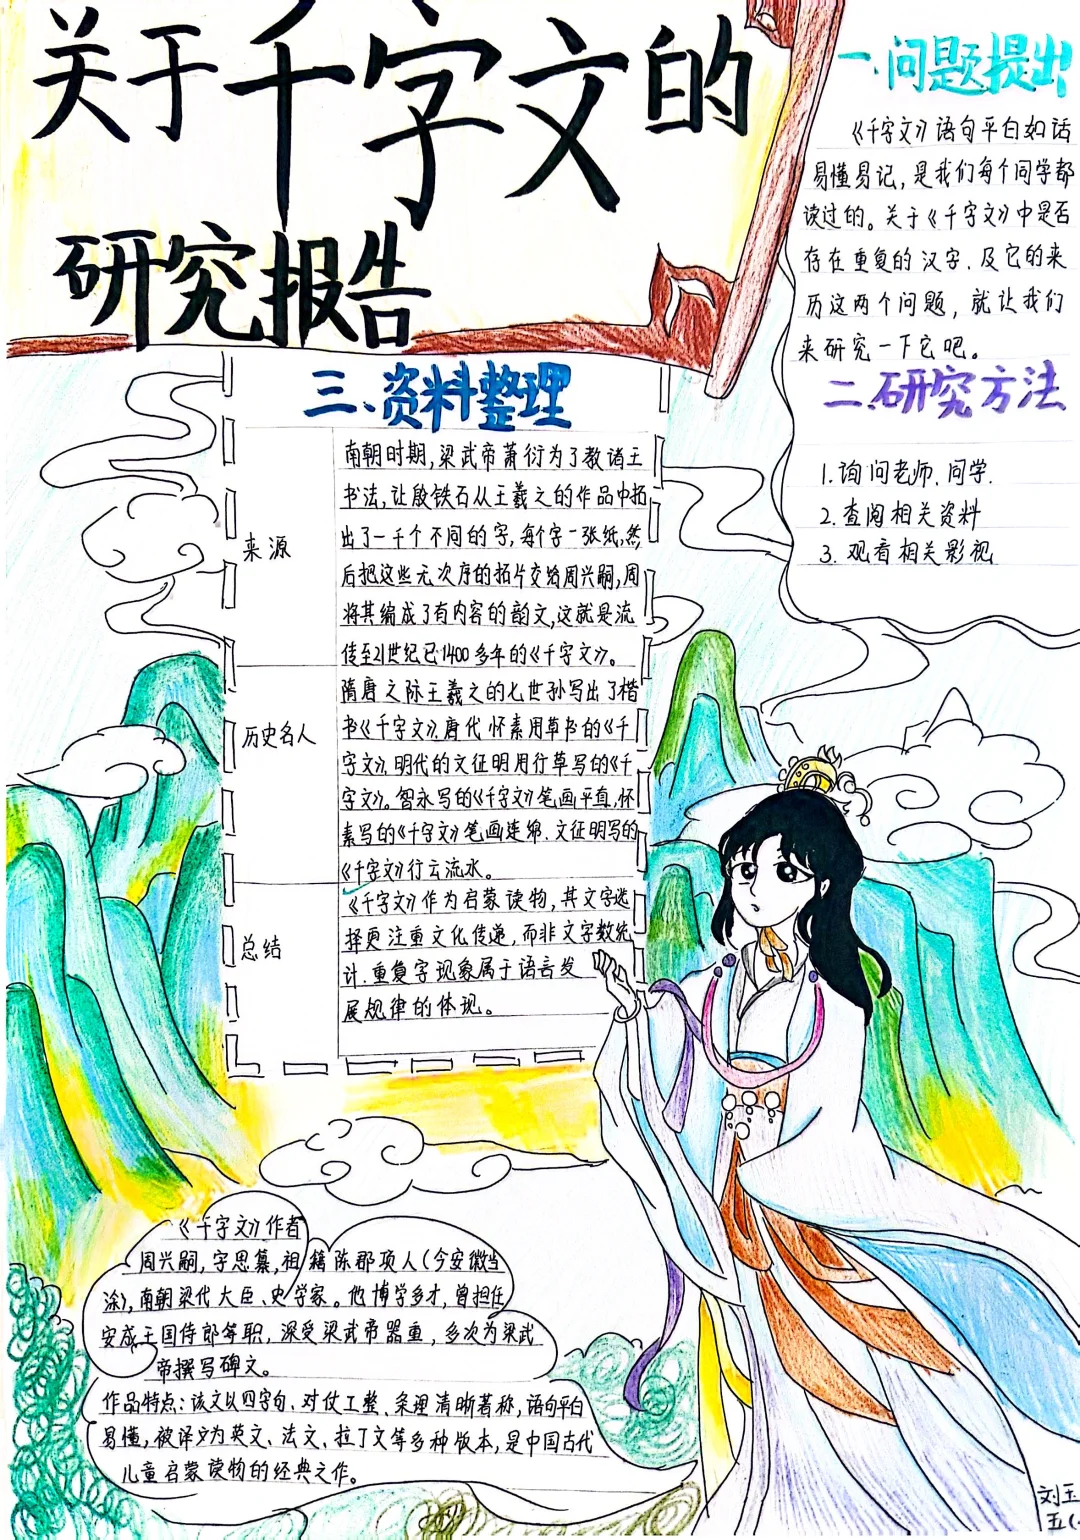 关于千字文的
研究报告
一、问题提出
《千字文》语句平白如话
易懂易记,是我们每个同学都
读过的。关于《千字文》中是否
存在重复的汉字、及它的来
历这两个问题,就让我们
来研究一下它吧。
二、研究方法
1.询问老师、同学.
2.查阅相关资料
3.观看相关影视
三、资料整理
来源
南朝时期,梁武帝萧衍为了教诸王
书法,让殷铁石从王羲之的作品中拓
出了一千个不同的字,每个字一张纸,然
后把这些无次序的拓片交给周兴嗣,周
将其编成了有内容的韵文,这就是流
传至21世纪已1400多年的《千字文》。
历史名人
隋唐之际王羲之的七世孙写出了楷
书《千字文》,唐代怀素用草书的《千
字文》,明代的文征明用行草写的《千
字文》。智永写的《千字文》笔画平直,怀
素写的《千字文》笔画连绵、文征明写的
《千字文》行云流水。
总结
《千字文》作为启蒙读物,其文字选
择更注重文化传递,而非文字数统
计.重复字现象属于语言发
展规律的体现。
《千字文》作者
周兴嗣,字思纂,祖籍陈郡项人(今安徽当
涂),南朝梁代大臣、史学家。他博学多才,曾担任
安成王国侍郎等职,深受梁武帝器重,多次为梁武
帝撰写碑文。
作品特点:该文以四字句、对仗工整、条理清晰著称,语句平白
易懂,被译为英文、法文、拉丁文等多种版本,是中国古代
儿童启蒙读物的经典之作。
刘玉
五(